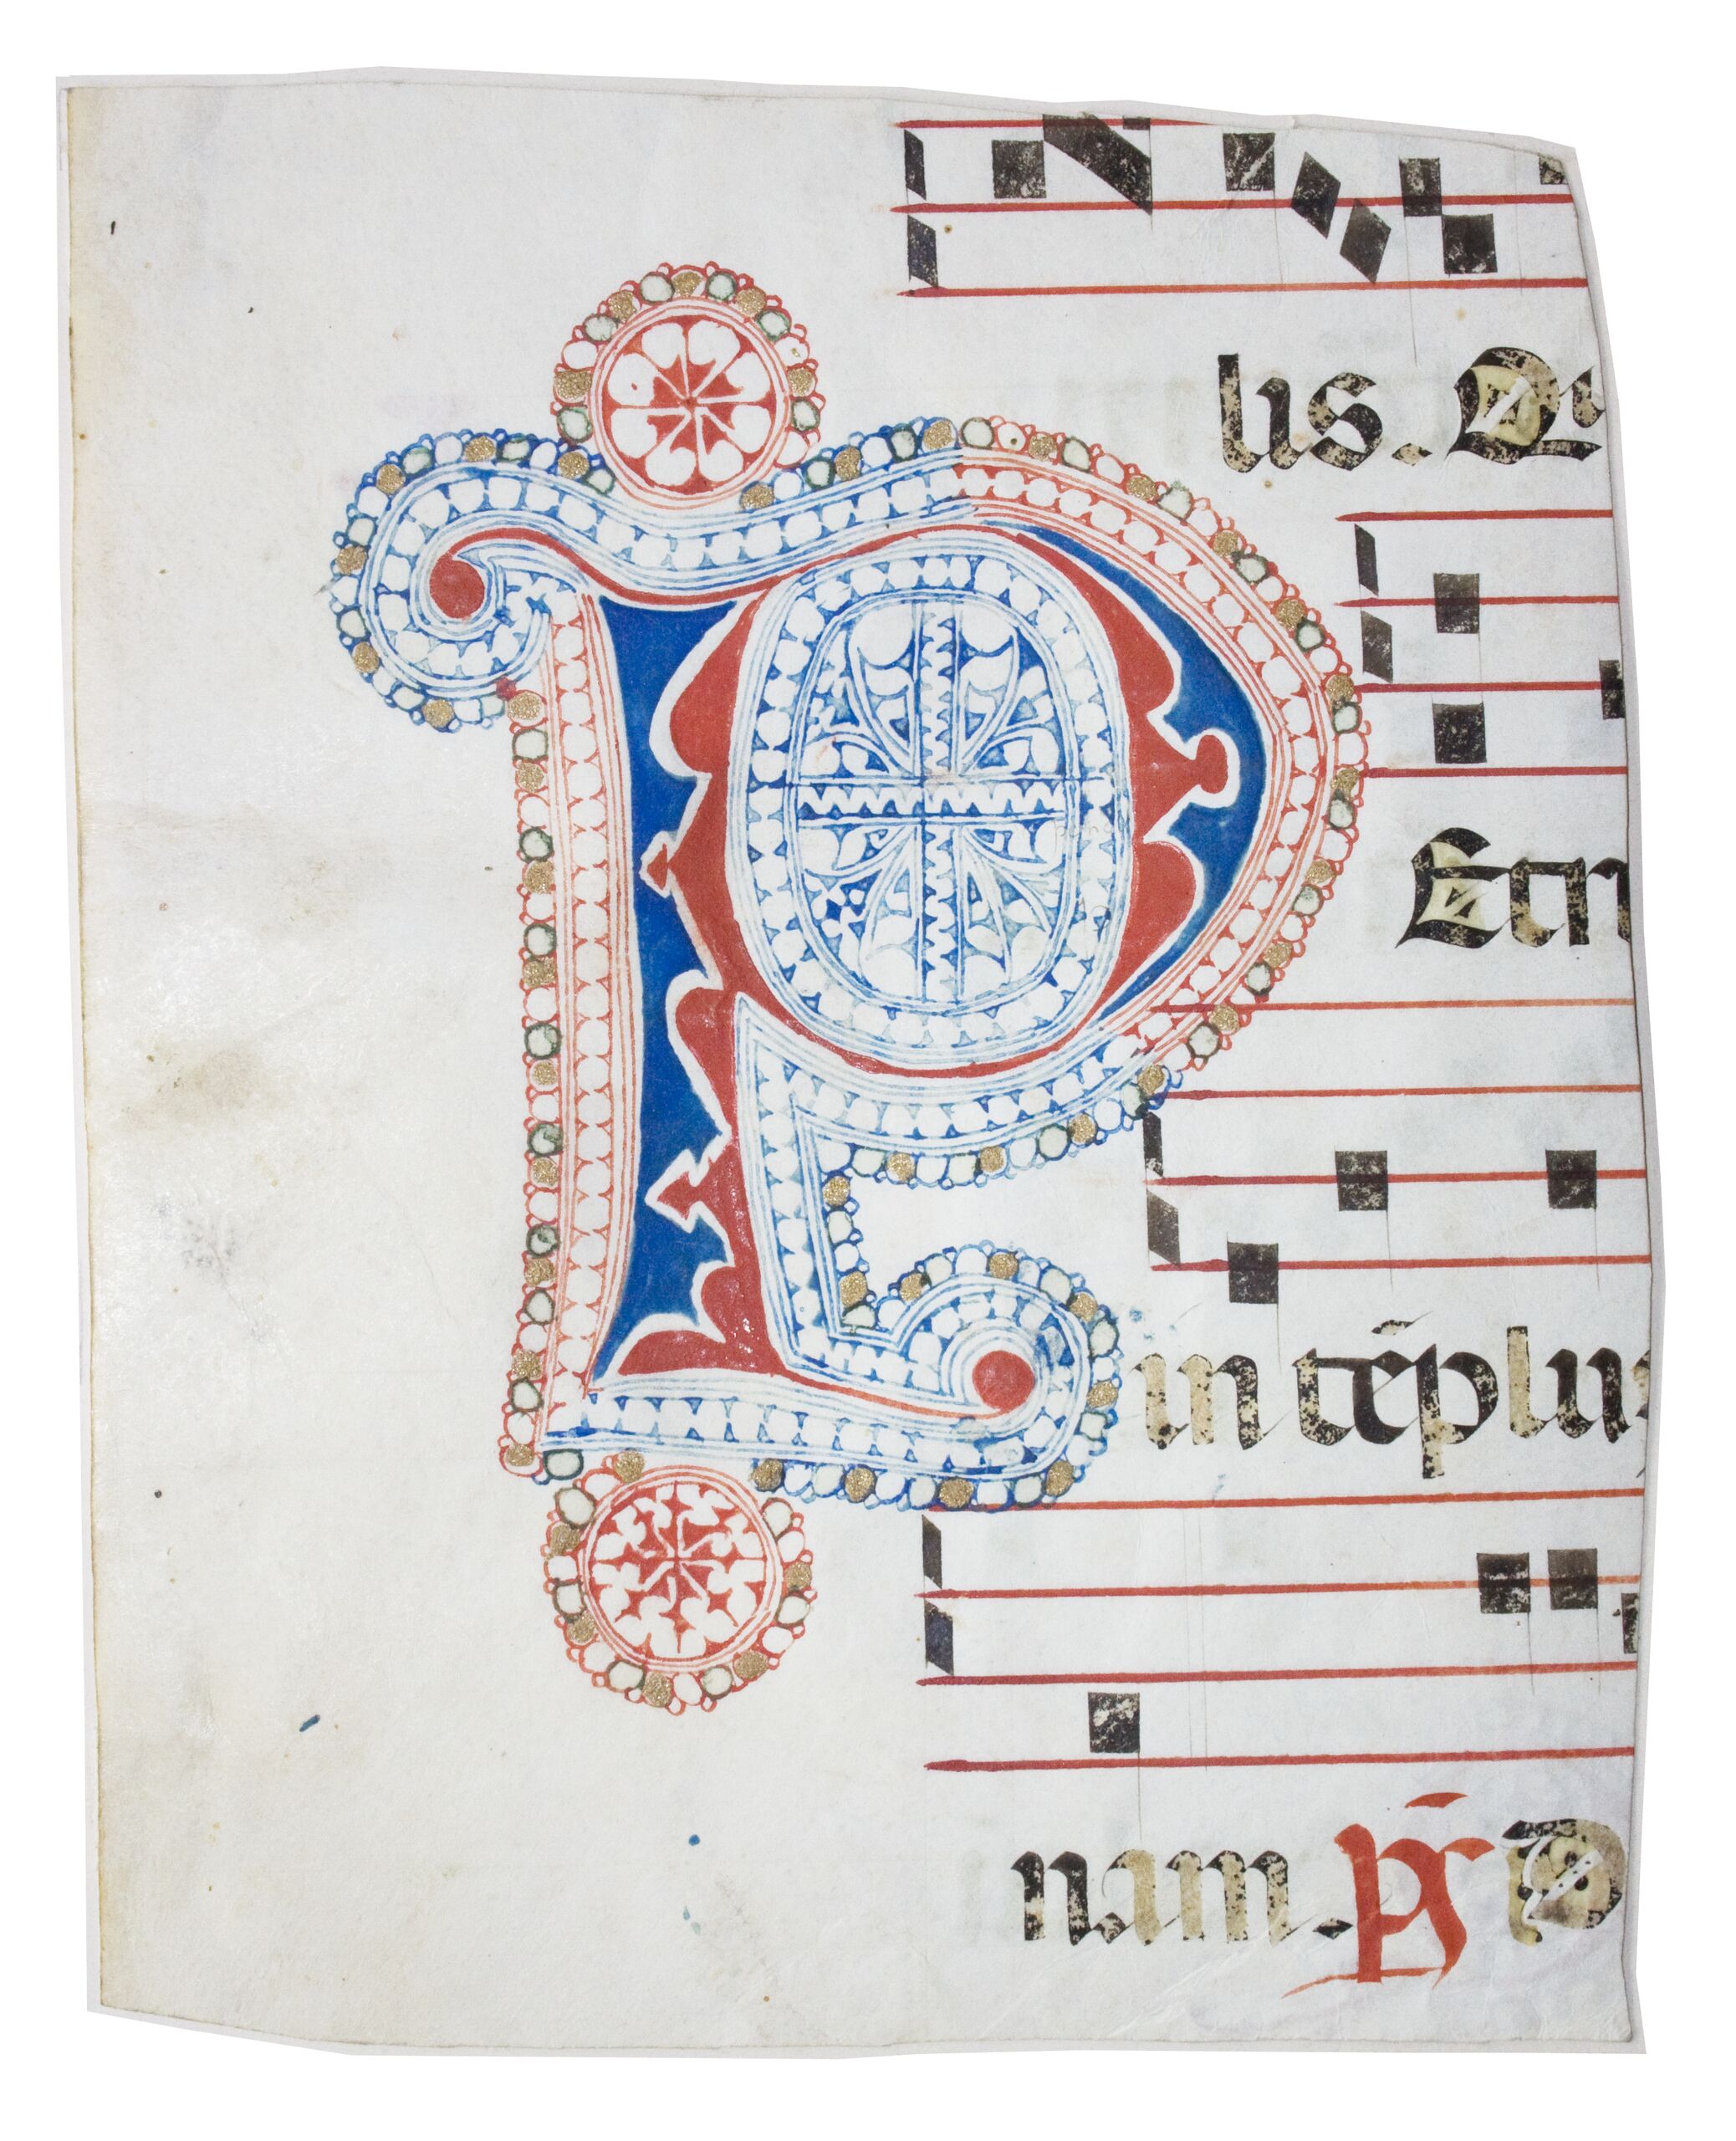 lus. Q
P Etr
in tēplu
nam. ps̄